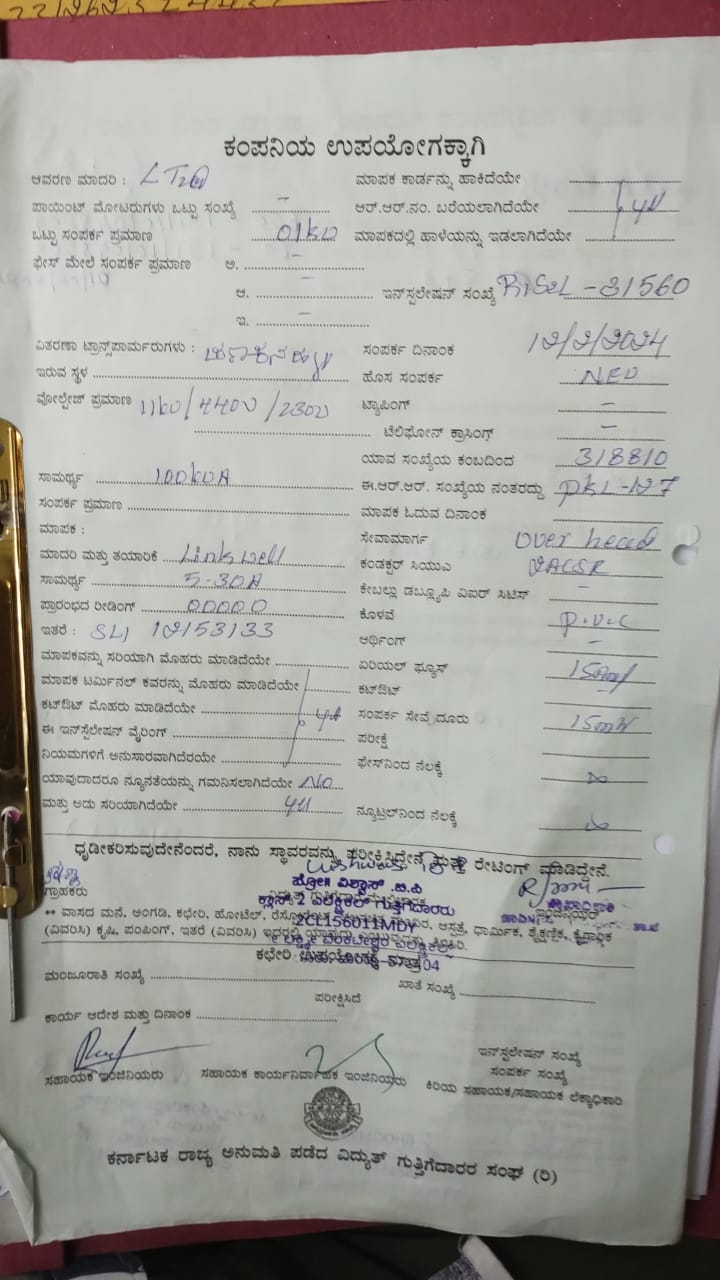 ಕಂಪನಿಯ ಉಪಯೋಗಕ್ಕಾಗಿ
ಆವರಣ ಮಾದರಿ : LT2
ಮಾಪಕ ಕಾರ್ಡನ್ನು ಹಾಕಿದೆಯೇ
ಪಾಯಿಂಟ್ ಮೋಟರುಗಳು ಒಟ್ಟು ಸಂಖ್ಯೆ -
ಆರ್.ಆರ್.ನಂ. ಬರೆಯಲಾಗಿದೆಯೇ
ಒಟ್ಟು ಸಂಪರ್ಕ ಪ್ರಮಾಣ 01KW
ಮಾಪಕದಲ್ಲಿ ಹಾಳೆಯನ್ನು ಇಡಲಾಗಿದೆಯೇ
ಫೇಸ್ ಮೇಲೆ ಸಂಪರ್ಕ ಪ್ರಮಾಣ ಅ. -
ಆ. -
ಇನ್ಸ್‌ಲೇಷನ್ ಸಂಖ್ಯೆ -31560
ಇ. -
ವಿತರಣಾ ಟ್ರಾನ್ಸ್‌ಪಾರ್ಮರುಗಳು :
ಸಂಪರ್ಕ ದಿನಾಂಕ 12/2/2024
ಇರುವ ಸ್ಥಳ
ಹೊಸ ಸಂಪರ್ಕ NEW
ವೋಲ್ಟೇಜ್ ಪ್ರಮಾಣ 11KV/440V/230V
ಟ್ಯಾಪಿಂಗ್ -
ಟೆಲಿಫೋನ್ ಕ್ರಾಸಿಂಗ್ -
ಯಾವ ಸಂಖ್ಯೆಯ ಕಂಬದಿಂದ 318810
ಸಾಮರ್ಥ್ಯ 100KVA
ಈ.ಆರ್.ಆರ್. ಸಂಖ್ಯೆಯ ನಂತರದ್ದು PKL-127
ಸಂಪರ್ಕ ಪ್ರಮಾಣ
ಮಾಪಕ ಓದುವ ದಿನಾಂಕ
ಮಾಪಕ :
ಸೇವಾಮಾರ್ಗ over head
ಮಾದರಿ ಮತ್ತು ತಯಾರಿಕೆ Linkwell
ಕಂಡಕ್ಟರ್ ಸಿಯುಎ
ಸಾಮರ್ಥ್ಯ 5-30A
ಕೇಬಲ್ಲು ಡಬ್ಲ್ಯೂಪಿ ವಿಐರ್ ಸಿಟಿಸ್ -
ಪ್ರಾರಂಭದ ರೀಡಿಂಗ್ 00000
ಕೊಳವೆ P.V.C
ಇತರೆ : SLI 12153133
ಆರ್ಥಿಂಗ್ -
ಮಾಪಕವನ್ನು ಸರಿಯಾಗಿ ಮೊಹರು ಮಾಡಿದೆಯೇ
ಏರಿಯಲ್ ಫ್ಯೂಸ್
ಮಾಪಕ ಟರ್ಮಿನಲ್ ಕವರನ್ನು ಮೊಹರು ಮಾಡಿದೆಯೇ
ಕಟ್‌ಔಟ್ -
ಕಟ್‌ಔಟ್ ಮೊಹರು ಮಾಡಿದೆಯೇ
ಸಂಪರ್ಕ ಸೇವೆ ದೂರು
ಈ ಇನ್‌ಸ್ಟಲೇಷನ್ ವೈರಿಂಗ್
ಪರೀಕ್ಷೆ
ನಿಯಮಗಳಿಗೆ ಅನುಸಾರವಾಗಿದೆರಯೇ
ಫೇಸ್‌ನಿಂದ ನೆಲಕ್ಕೆ
ಯಾವುದಾದರೂ ನ್ಯೂನತೆಯನ್ನು ಗಮನಿಸಲಾಗಿದೆಯೇ No
ಮತ್ತು ಅದು ಸರಿಯಾಗಿದೆಯೇ
ನ್ಯೂಟ್ರಲ್‌ನಿಂದ ನೆಲಕ್ಕೆ
ಧೃಡೀಕರಿಸುವುದೇನೆಂದರೆ, ನಾನು ಸ್ಥಾವರವನ್ನು ಪರೀಕ್ಷಿಸಿದ್ದೇನೆ ಮತ್ತು ರೇಟಿಂಗ್ ಮಾಡಿದ್ದೇನೆ.
ಗ್ರಾಹಕರು
ಕ್ಲಾಸ್ 2 ಎಲೆಕ್ಟ್ರಿಕಲ್ ಗುತ್ತಿಗೆದಾರರು
** ವಾಸದ ಮನೆ, ಅಂಗಡಿ, ಕಛೇರಿ, ಹೋಟೆಲ್, ಆಸ್ಪತ್ರೆ, ಧಾರ್ಮಿಕ, ಶೈಕ್ಷಣಿಕ, ಕೈಗಾರಿಕೆ
2CL156011MDY
(ವಿವರಿಸಿ) ಕೃಷಿ, ಪಂಪಿಂಗ್, ಇತರೆ (ವಿವರಿಸಿ)
ಕಛೇರಿ ಉಪಯೋಗಕ್ಕೆ ಮಾತ್ರ
ಮಂಜೂರಾತಿ ಸಂಖ್ಯೆ
ಖಾತೆ ಸಂಖ್ಯೆ
ಪರೀಕ್ಷಿಸಿದೆ
ಕಾರ್ಯ ಆದೇಶ ಮತ್ತು ದಿನಾಂಕ
ಇನ್‌ಸ್ಟಲೇಷನ್ ಸಂಖ್ಯೆ
ಸಂಪರ್ಕ ಸಂಖ್ಯೆ
ಸಹಾಯಕ ಇಂಜಿನಿಯರು
ಸಹಾಯಕ ಕಾರ್ಯನಿರ್ವಾಹಕ ಇಂಜಿನಿಯರು
ಕಿರಿಯ ಸಹಾಯಕ/ಸಹಾಯಕ ಲೆಕ್ಕಾಧಿಕಾರಿ
ಕರ್ನಾಟಕ ರಾಜ್ಯ ಅನುಮತಿ ಪಡೆದ ವಿದ್ಯುತ್ ಗುತ್ತಿಗೆದಾರರ ಸಂಘ (ರಿ)